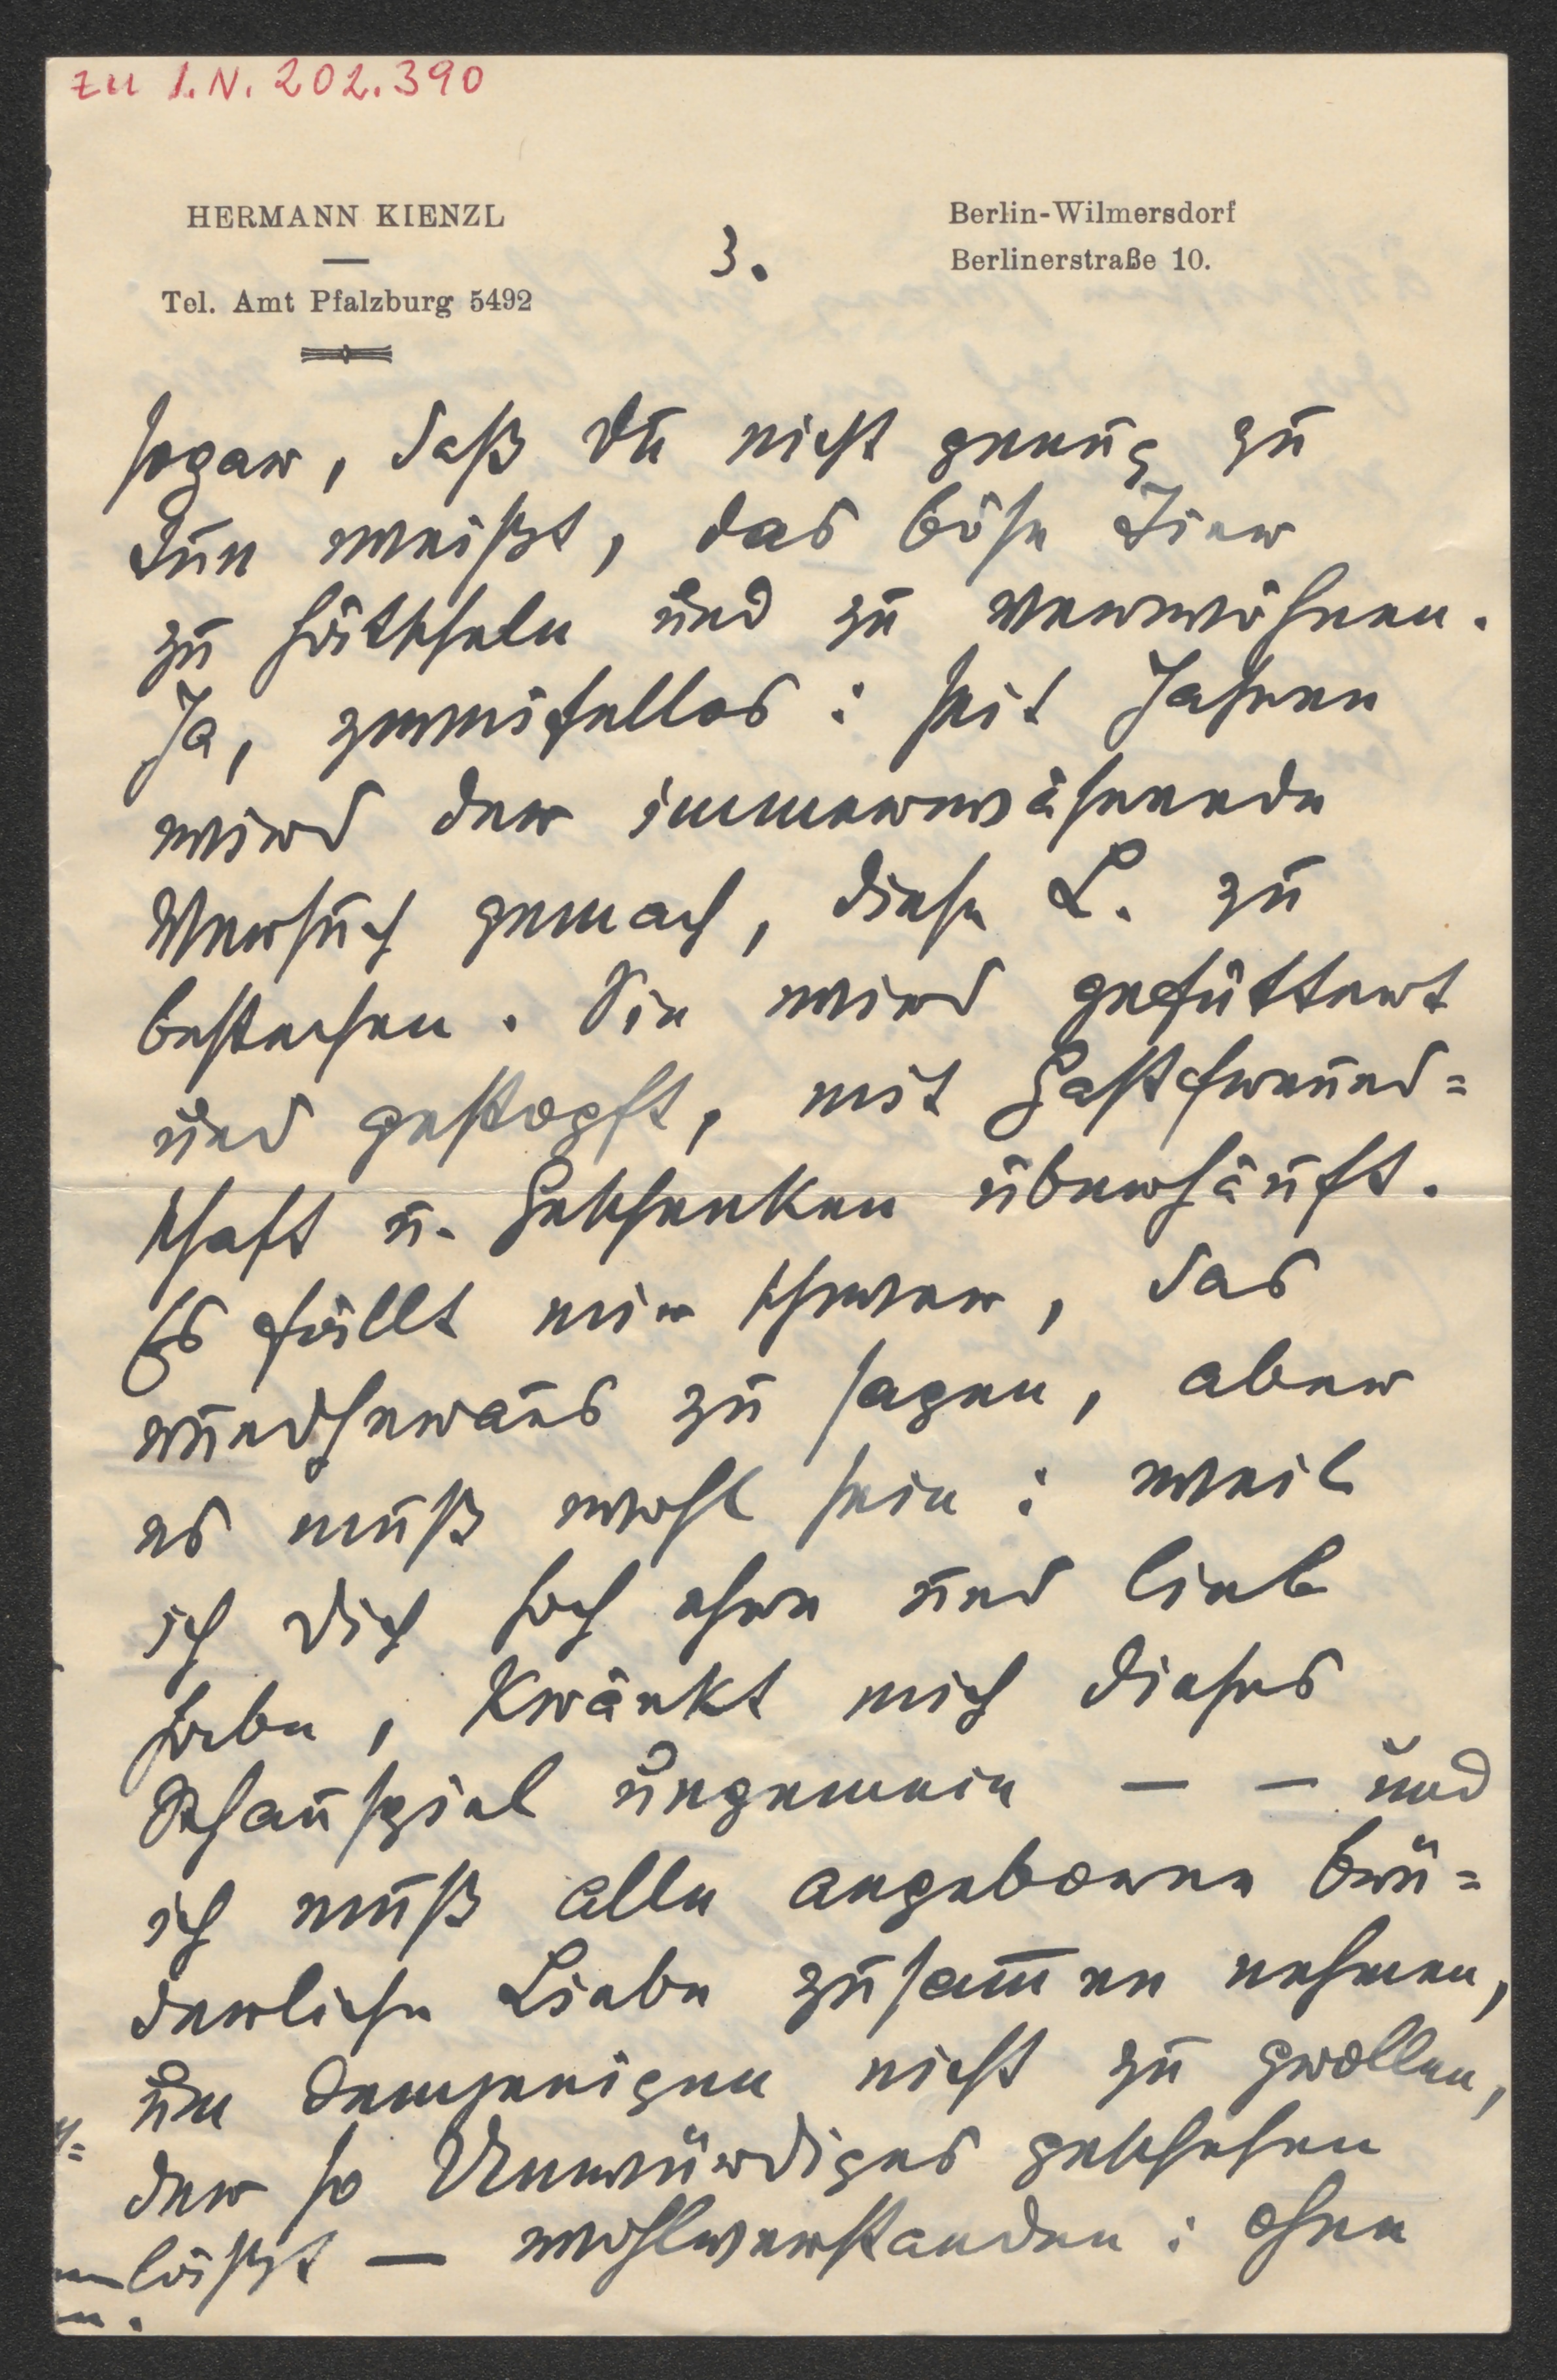 zu I.N. 202.390
HERMANN KIENZL
Tel. Amt Pfalzburg 5492
3.
Berlin-Wilmersdorf
Berlinerstraße 10.
sogar, daß Du nicht genug zu
tun weißt, das böse Tier
zu hätscheln und zu verwöhnen.
Ja, zweifellos: seit Jahren
wird der immerwährende
Versuch gemach, diese L. zu
bestechen. Sie wird gefüttert
und gestopft, mit Gastfreund=
schaft u. Geschenken überhäuft.
Es fällt mir schwer, das
rundheraus zu sagen, aber
es muß wohl sein: weil
ich Dich hoch ehre und lieb
habe, kränkt mich dieses
Schauspiel ungemein — — und
ich muß alle angeborne brü=
derliche Liebe zusammen nehmen,
um demjenigen nicht zu grollen,
der so Unwürdiges geschehen
läßt — wohlverstanden: ohne